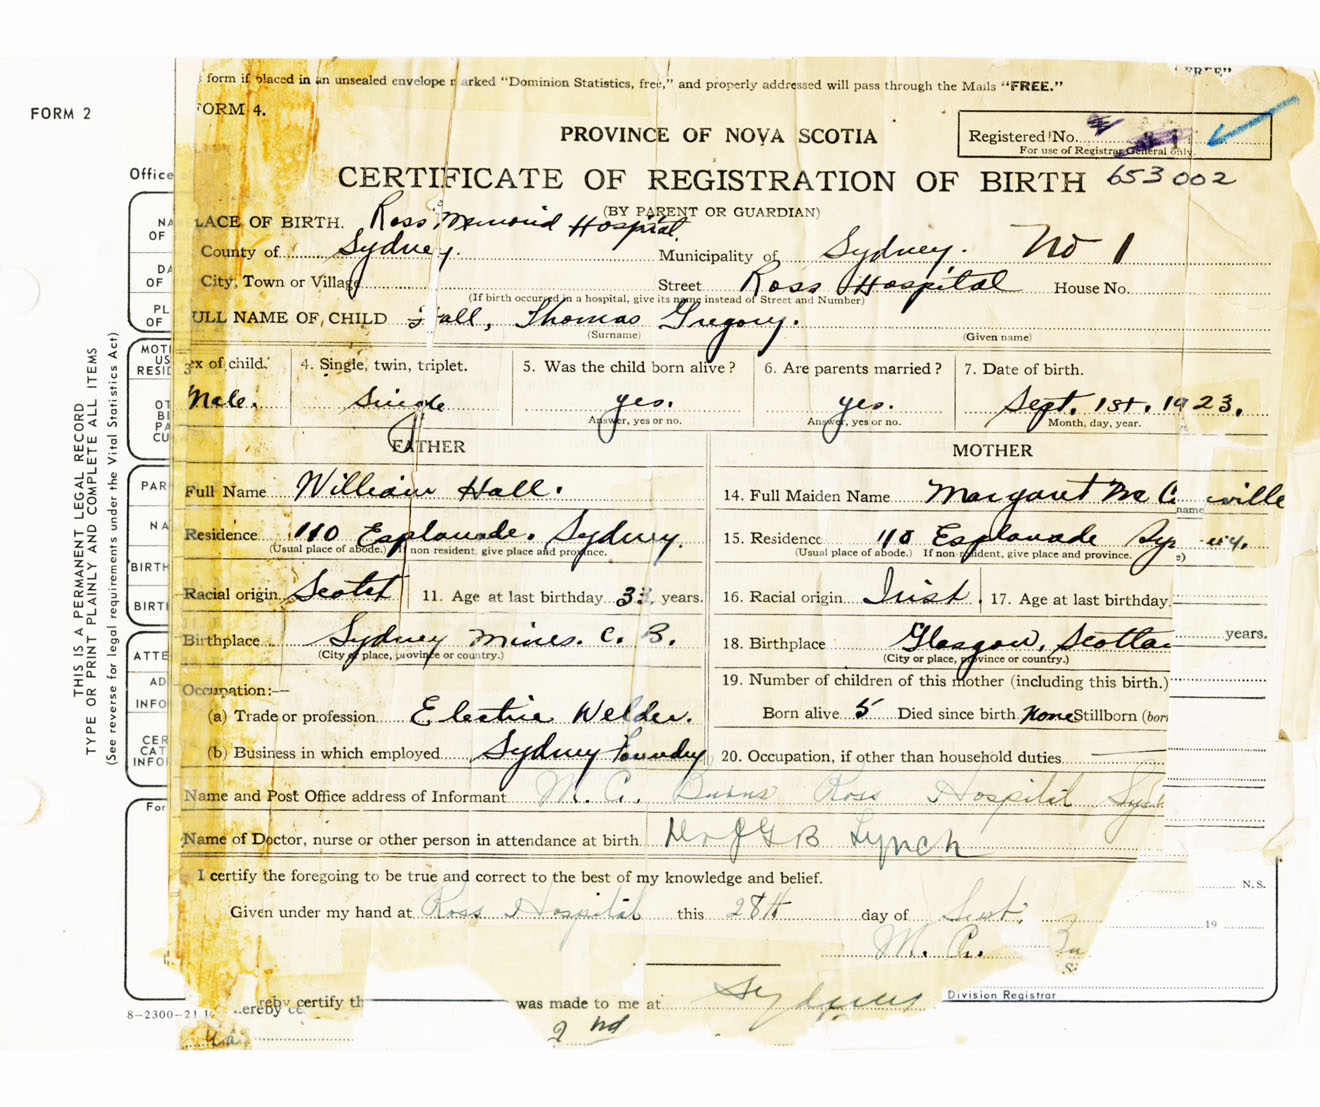 "FREE"
form if placed in an unsealed envelope marked "Dominion Statistics, free," and properly addressed will pass through the Mails "FREE."
FORM 2
FORM 4.
PROVINCE OF NOVA SCOTIA
Registered No.
For use of Registrar General only.
CERTIFICATE OF REGISTRATION OF BIRTH 653002
(BY PARENT OR GUARDIAN)
LACE OF BIRTH. Ross Memorial Hospital
County of Sydney. Municipality of Sydney. No 1
City, Town or Village Street Ross Hospital House No.
(If birth occurred in a hospital, give its name instead of Street and Number)
ULL NAME OF CHILD Hall, Thomas Gregory.
(Surname) (Given name)
3 ex of child. 4. Single, twin, triplet. 5. Was the child born alive? 6. Are parents married? 7. Date of birth.
Male. Single yes. yes. Sept. 1st. 1923.
Answer, yes or no. Answer, yes or no. Month, day, year.
FATHER MOTHER
Full Name William Hall. 14. Full Maiden Name Margaret Mc C ville
name
Residence 110 Esplanade. Sydney. 15. Residence 110 Esplanade Sy ey.
(Usual place of abode.) If non-resident, give place and province. (Usual place of abode.) If non-resident, give place and province. e)
Racial origin Scotch 11. Age at last birthday 33 years. 16. Racial origin Irish. 17. Age at last birthday.
years.
Birthplace Sydney Mines. C. B. 18. Birthplace Glasgow, Scotla
(City or place, province or country.) (City or place, province or country.)
Occupation:— 19. Number of children of this mother (including this birth.)
(a) Trade or profession Electric Welder. Born alive 5 Died since birth None Stillborn (born
(b) Business in which employed Sydney Foundry 20. Occupation, if other than household duties
Name and Post Office address of Informant M. C. Burns Ross Hospital Syd
Name of Doctor, nurse or other person in attendance at birth. Dr J G B Lynch
I certify the foregoing to be true and correct to the best of my knowledge and belief.
N.S.
Given under my hand at Ross Hospital this 28th day of Sept.
19
M. C. Bu
ereby certify th
ereby ce was made to me at Sydney
Division Registrar
8-2300-21
2nd
Office
NA
OF
DA
OF
PL
OF
MOTH
US
RESID
OT
BI
PA
CU
PAR
NA
BIRTH
BIRTH
ATTE
AD
INFO
CER
CAT
INFO
For
THIS IS A PERMANENT LEGAL RECORD
TYPE OR PRINT PLAINLY AND COMPLETE ALL ITEMS
(See reverse for legal requirements under the Vital Statistics Act)